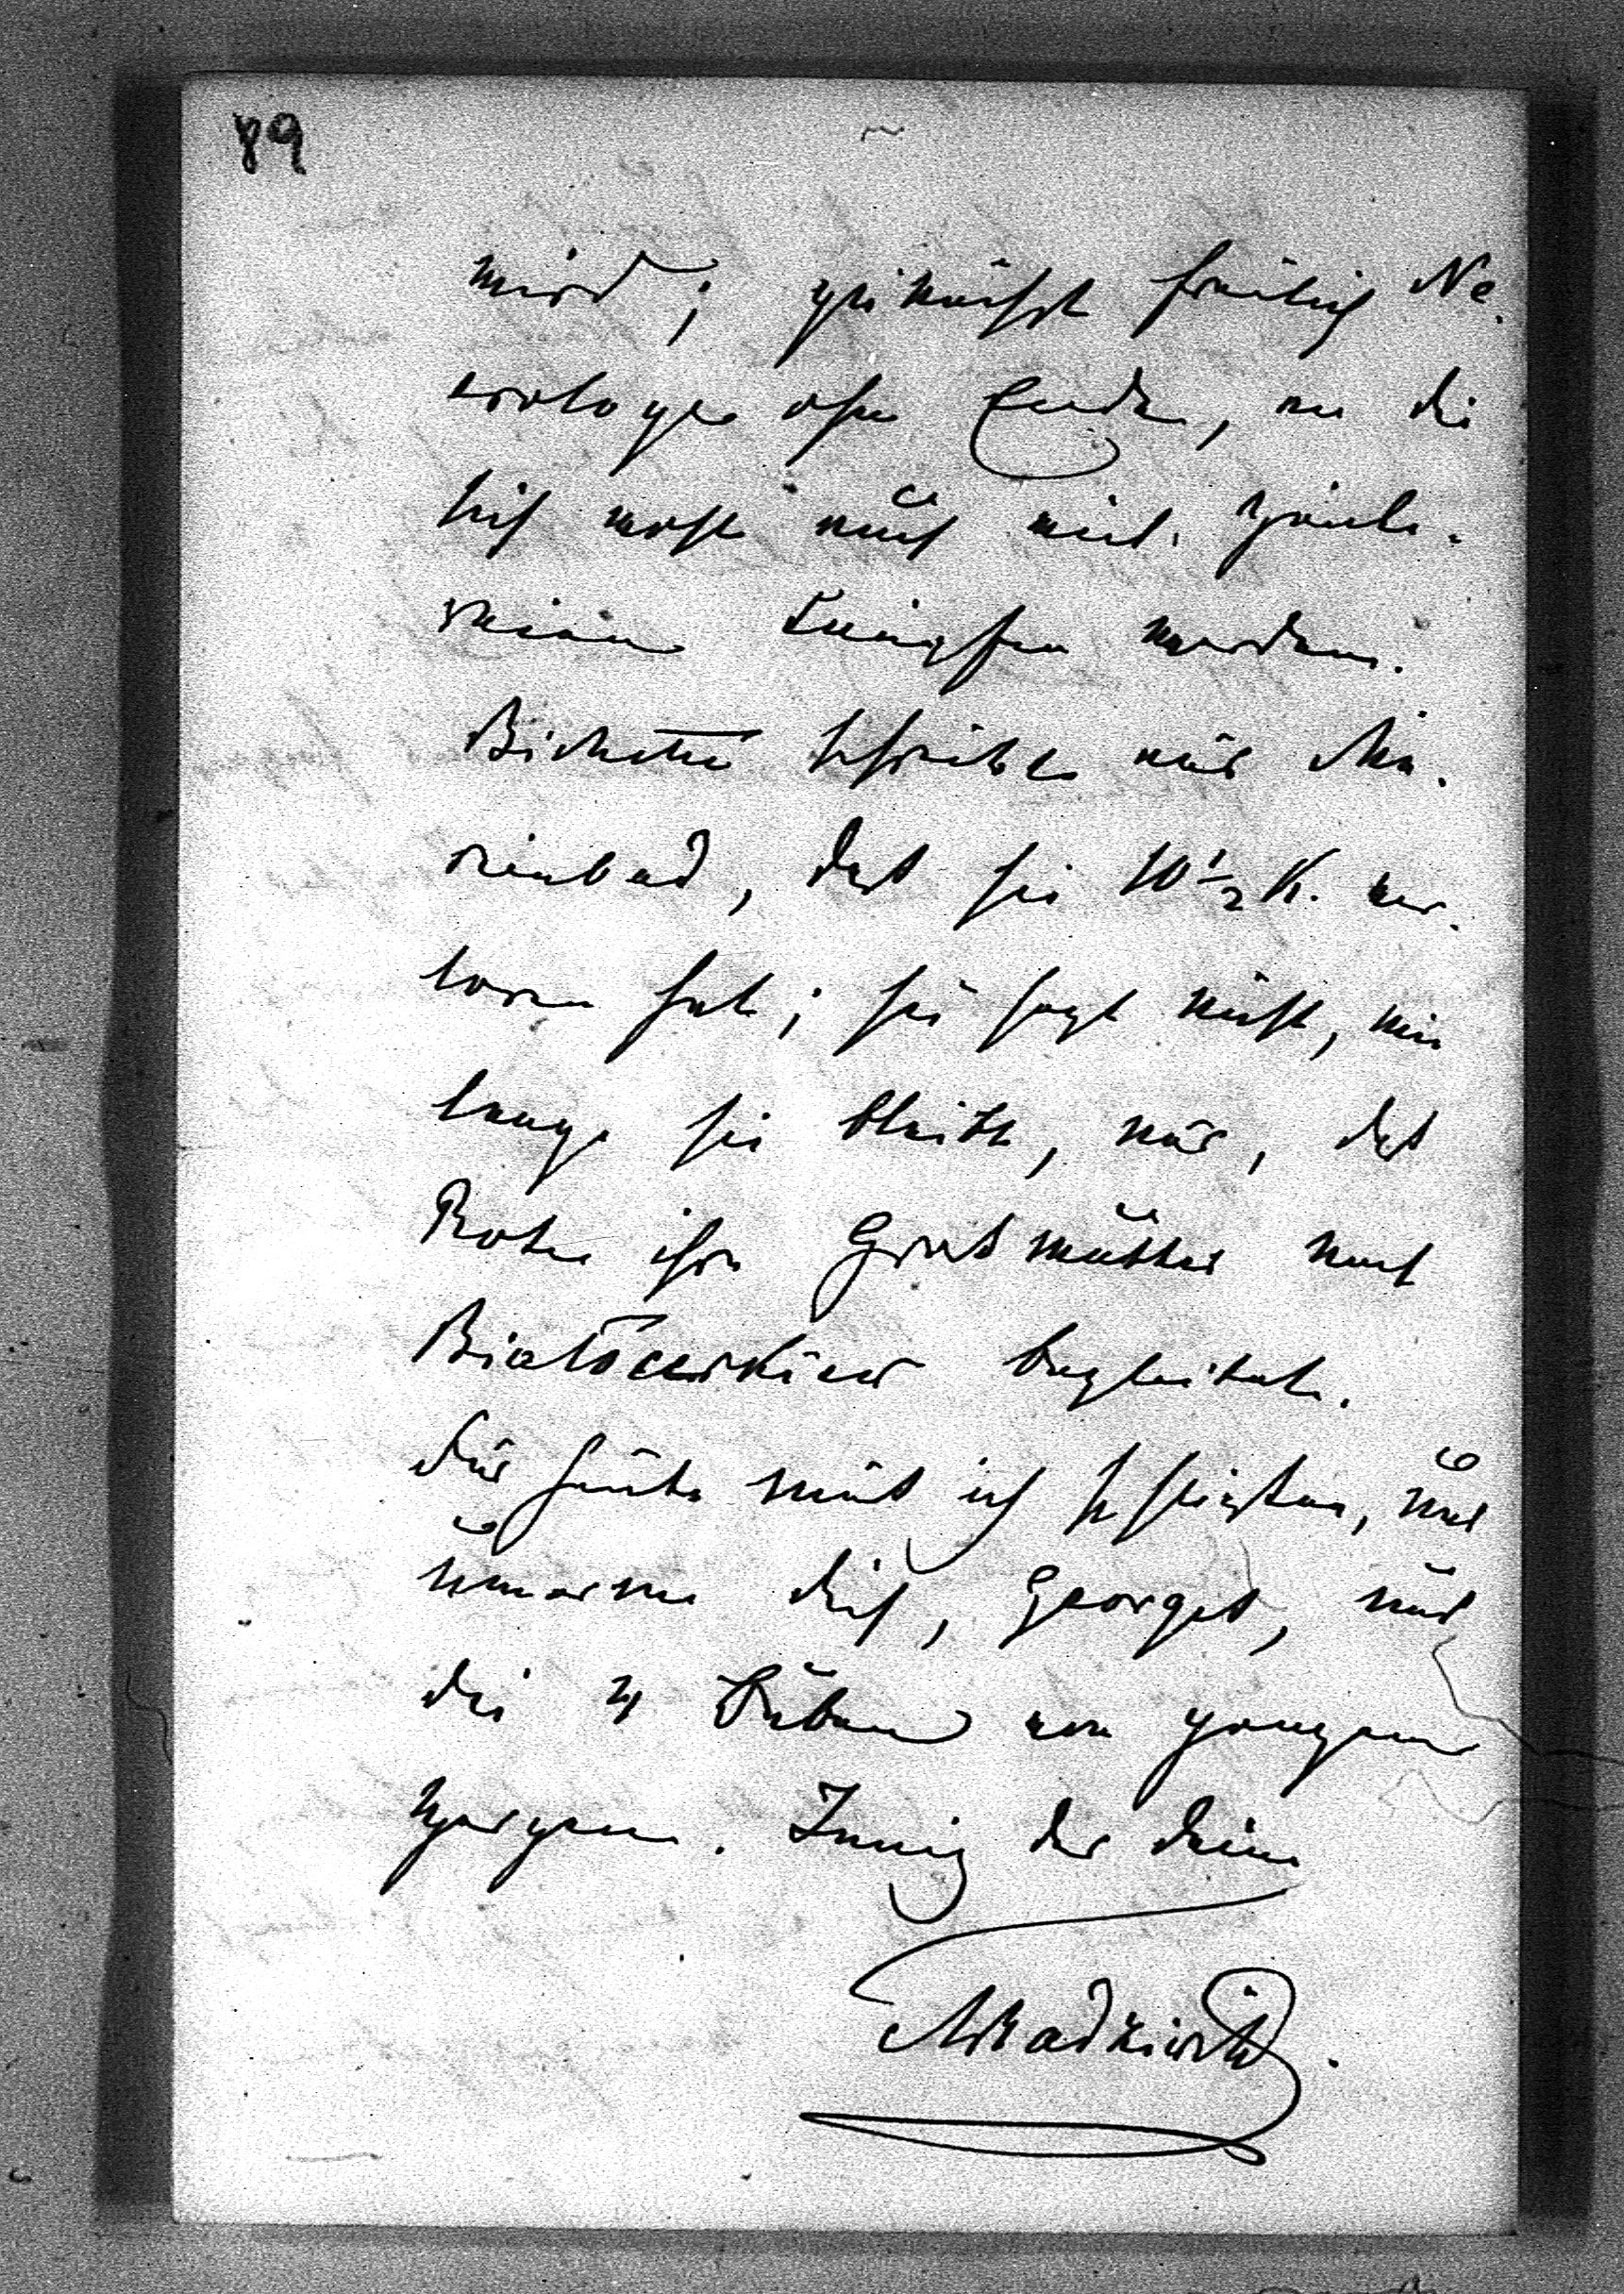 89
wird; zunächst freilich Ne-
crologe ohne Ende, an die
sich wohl auch
knüpfen werden.
Bichette schreibt aus Ma-
rienbad, daß sie 10½ K. ver-
loren hat; sie sagt nicht, wie
lange sie bleibt, nur, daß
ihre Großmutter nach
Bialocerkiew begleitete.
Für heute muß ich schließen, und
umarme dich, Georges, und
die 4 Buben von ganzem
Herzen. Innig der deine
ARadziwill.